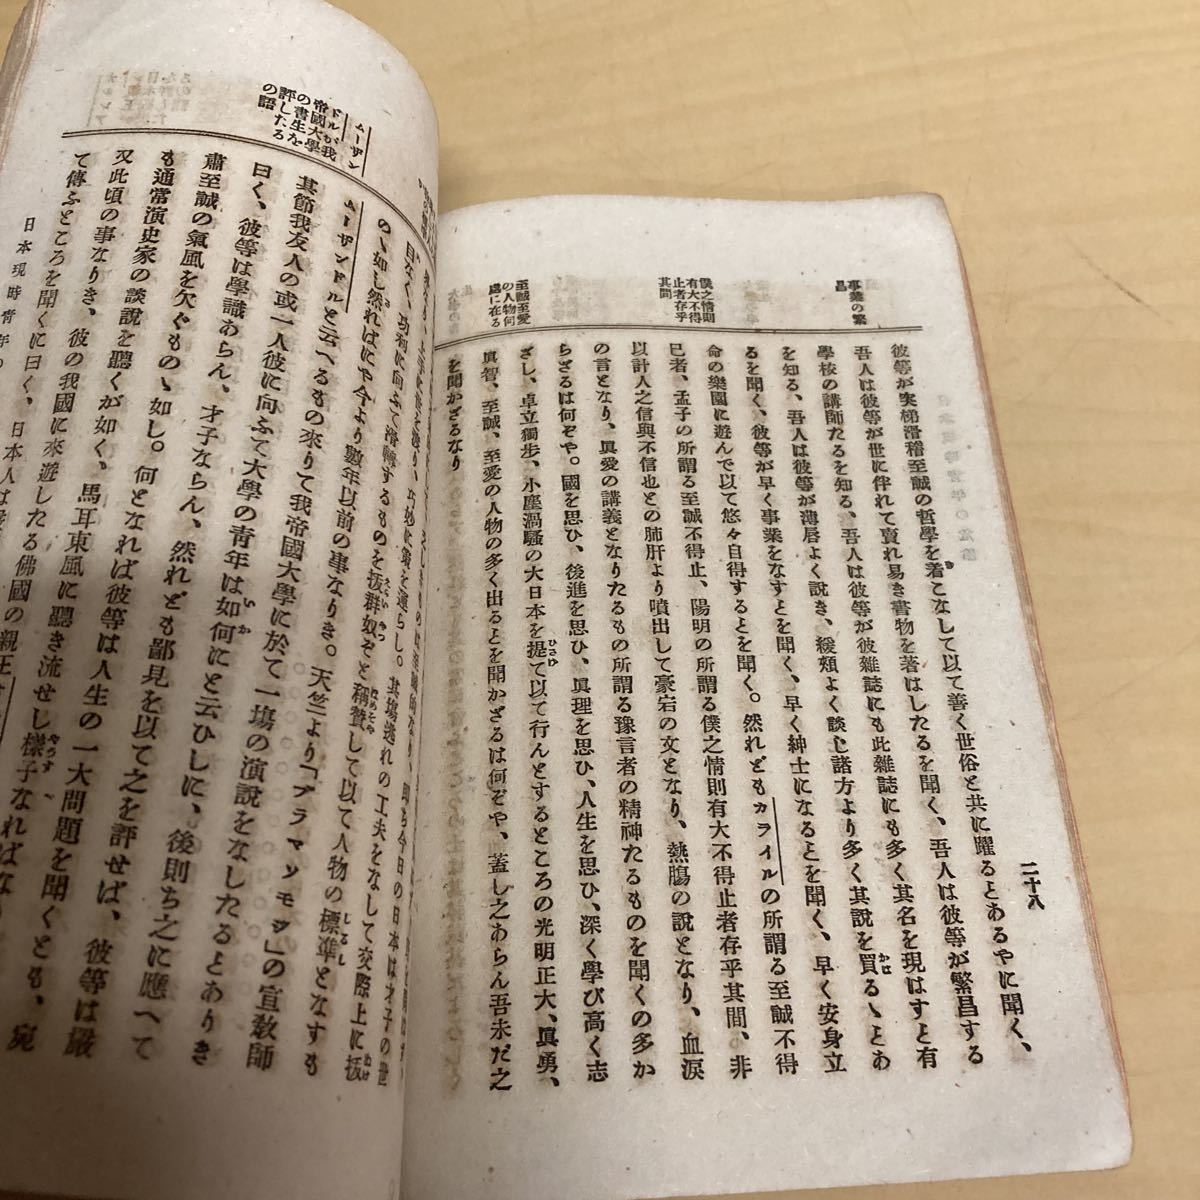 二十八
事業の繁
昌
僕之情則
有大不得
止者存乎
其間
至誠至愛
の人物何
處に在る
彼等が突梯滑稽至誠の哲學を着こなして以て善く世俗と共に躍るとあるやに聞く、
吾人は彼等が世に伴れて賣れ易き書物を著はしたるを聞く、吾人は彼等が繁昌する
學校の講師たるを知る、吾人は彼等が彼雜誌にも此雜誌にも多く其名を現はすと有
を知る、吾人は彼等が薄唇よく說き、緩頰よく談じ諸方より多く其說を買るゝとあ
るを聞く、彼等が早く事業をなすとを聞く、早く紳士になるとを聞く、早く安身立
命の樂園に遊んで以て悠々自得するとを聞く。然れどもカライルの所謂る至誠不得
已者、孟子の所謂る至誠不得止、陽明の所謂る僕之情則有大不得止者存乎其間、非
以計人之信與不信也との肺肝より噴出して豪宕の文となり、熱膓の說となり、血淚
の言となり、眞愛の講義となりたるもの所謂る豫言者の精神たるものを聞くの多か
らざるは何ぞや。國を思ひ、後進を思ひ、眞理を思ひ、人生を思ひ、深く學び高く志
ざし、卓立獨步、小塵渦騷の大日本を提て以て行んとするところの光明正大、眞勇、
眞智、至誠、至愛の人物の多く出るとを聞かざるは何ぞや、蓋し之あらん吾未だ之
を聞かざるなり
ムーザン
ドルが我
帝國大學
の書生を
評したる
の語
目なく、功利に向ふて滑轉するものを拔群奴ぞと稱贊して以て人物の標準となすも
のゝ如し然ればにや今より數年以前の事なりき。天竺より「ブラマソモヲ」の宣敎師
ムーザンドルと云へるもの來りて我帝國大學に於て一塲の演說をなしたるとありき
其節我友人の或一人彼に向ふて大學の靑年は如何にと云ひしに、後則ち之に應へて
曰く、彼等は學識あらん、才子ならん、然れども鄙見を以て之を評せば、彼等は嚴
肅至誠の氣風を欠ぐものゝ如し。何となれば彼等は人生の一大問題を聞くとも、宛
も通常演史家の談說を聽くが如く、馬耳東風に聽き流せし樣子なればな
又此頃の事なりき、彼の我國に來遊したる佛國の親王
て傳ふところを聞くに曰く、日本人は
日本現時靑年の